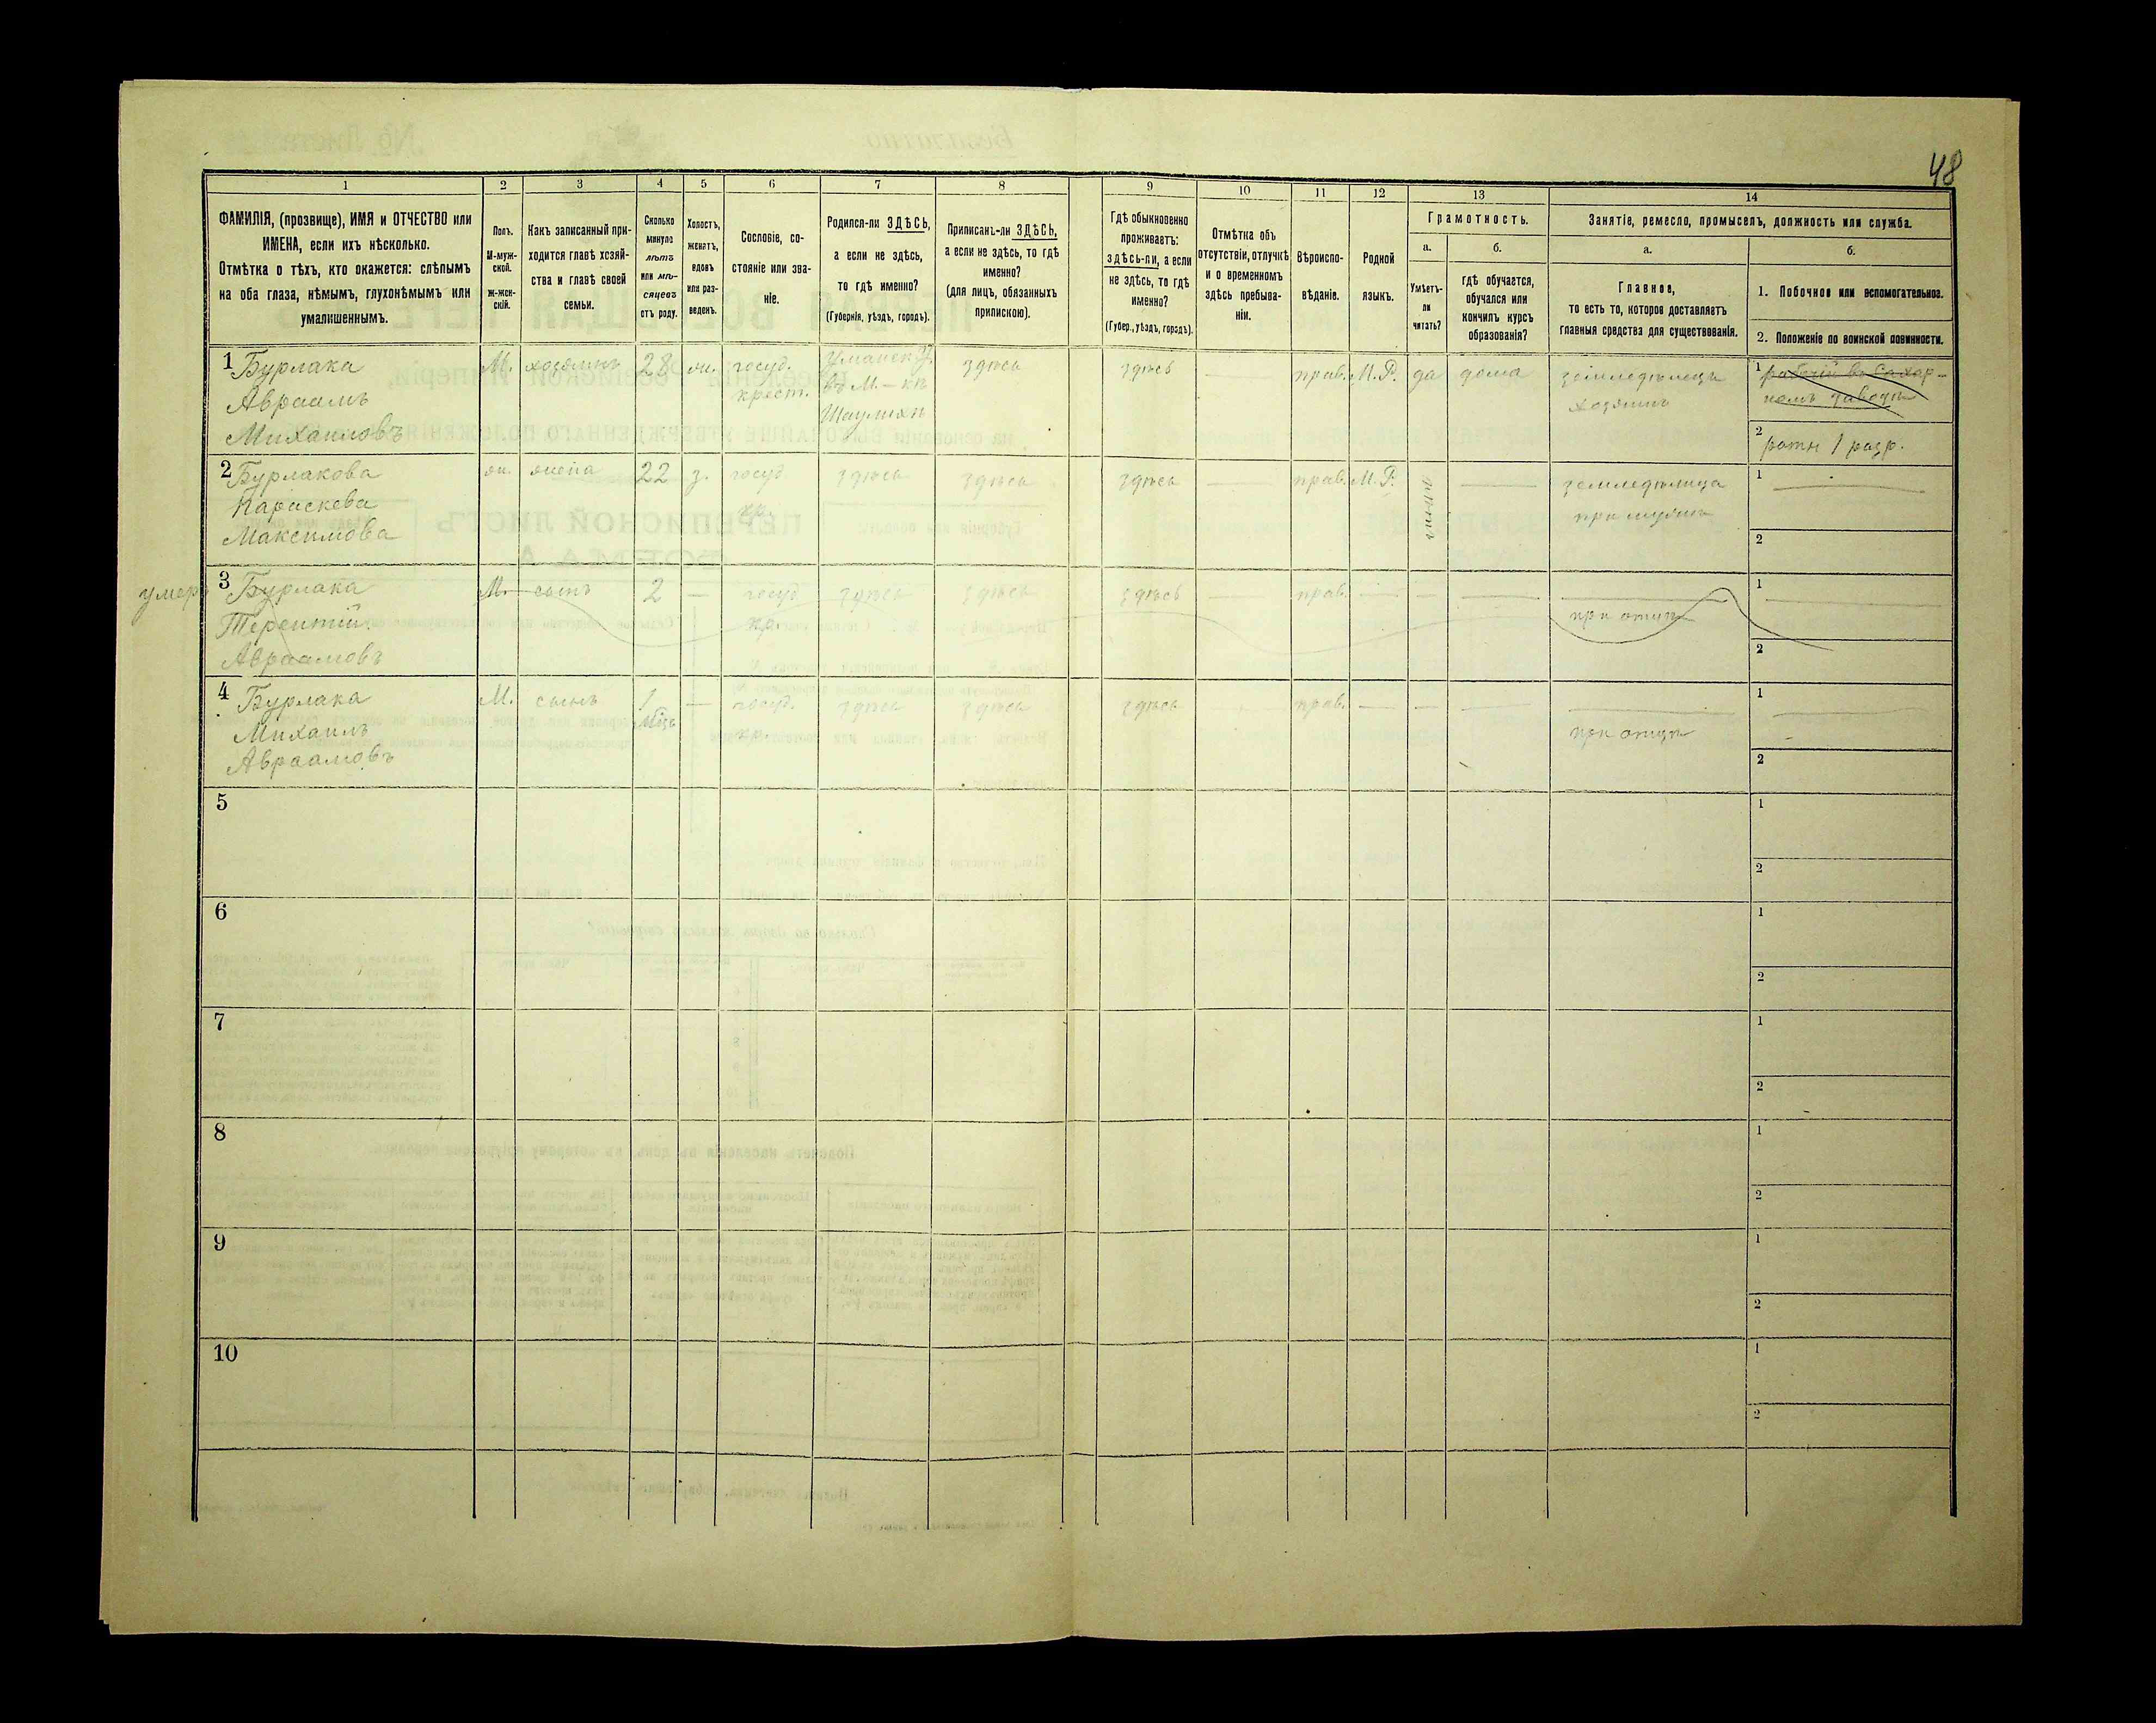 48
1 2 3 4 5 6 7 8 9 10 11 12 13 14
ФАМИЛІЯ, (прозвище), ИМЯ и ОТЧЕСТВО или
ИМЕНА, если ихъ нѣсколько.
Отмѣтка о тѣхъ, кто окажется: слѣпымъ
на оба глаза, нѣмымъ, глухонѣмымъ или
умалишеннымъ.
Полъ.
М-муж-
ской.
ж-жен-
скій.
Какъ записанный при-
ходится главѣ хозяй-
ства и главѣ своей
семьи.
Сколько
минуло
лѣтъ
или мѣ-
сяцевъ
отъ роду.
Холостъ,
женатъ,
вдовъ
или раз-
веденъ.
Сословіе, со-
стояніе или зва-
ніе.
Родился-ли ЗДѢСЬ,
а если не здѣсь,
то гдѣ именно?
(Губернія, уѣздъ, городъ).
Приписанъ-ли ЗДѢСЬ,
а если не здѣсь, то гдѣ
именно?
(для лицъ, обязанныхъ
припискою).
Гдѣ обыкновенно
проживаетъ:
здѣсь-ли, а если
не здѣсь, то гдѣ
именно?
(Губер., уѣздъ, городъ).
Отмѣтка объ
отсутствіи, отлучкѣ
и о временномъ
здѣсь пребыва-
ніи.
Вѣроиспо-
вѣданіе.
Родной
языкъ.
Грамотность.
а.
Умѣетъ-
ли
читать?
б.
гдѣ обучается,
обучался или
кончилъ курсъ
образованія?
Занятіе, ремесло, промыселъ, должность или служба.
а.
Главное,
то есть то, которое доставляетъ
главныя средства для существованія.
б.
1. Побочное или вспомогательное.
2. Положеніе по воинской повинности.
1 Бурлака
Авраамъ
Михаиловъ
М.
хозяинъ
28
жи.
госуд.
крест.
Уманск. У.
въ М.-кѣ
здѣсь
здѣсь
—
прав.
М. Р.
да
дома
земледѣлецъ
хозяинъ
1 рабочій въ Сахар-
номъ заводѣ
2 ратн 1 разр.
2 Бурлакова
Параскева
Максимова
жи.
жена
22
з.
госуд
кр.
здѣсь
здѣсь
здѣсь
—
прав.
М. Р.
нѣтъ
—
земледѣлица
при мужѣ
1 —
2
умеръ
3 Бурлака
Терентій
Авраамовъ
М.
сынъ
2
—
госуд
кр.
здѣсь
здѣсь
здѣсь
—
прав.
—
—
—
—
при отцѣ
1 —
2
4 Бурлака
Михаилъ
Авраамовъ
М.
сынъ
1
мѣсъ
—
госуд.
кр.
здѣсь
здѣсь
здѣсь
—
прав.
—
—
—
—
при отцѣ
1 —
2
5
1
2
6
1
2
7
1
2
8
1
2
9
1
2
10
1
2